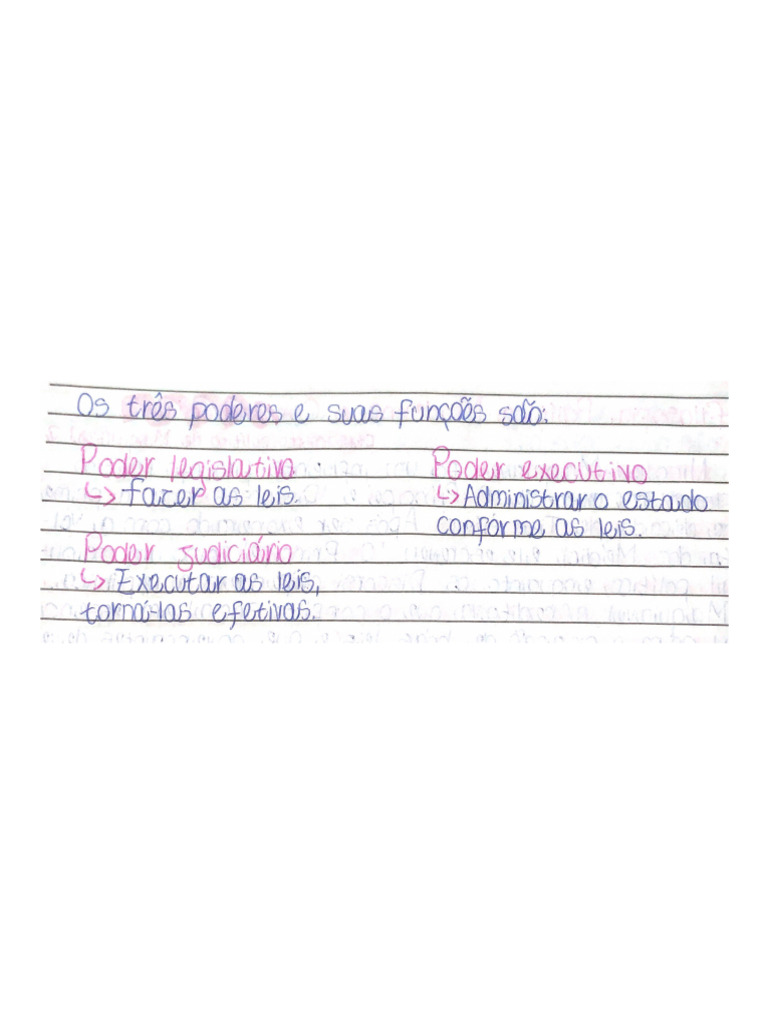 Os três poderes e suas funções são:
Poder legislativa
↳ facer as leis.
Poder executivo
↳ Administrar o estado
conforme as leis.
Poder judiciário
↳ Executar as leis,
torná-las efetivas.